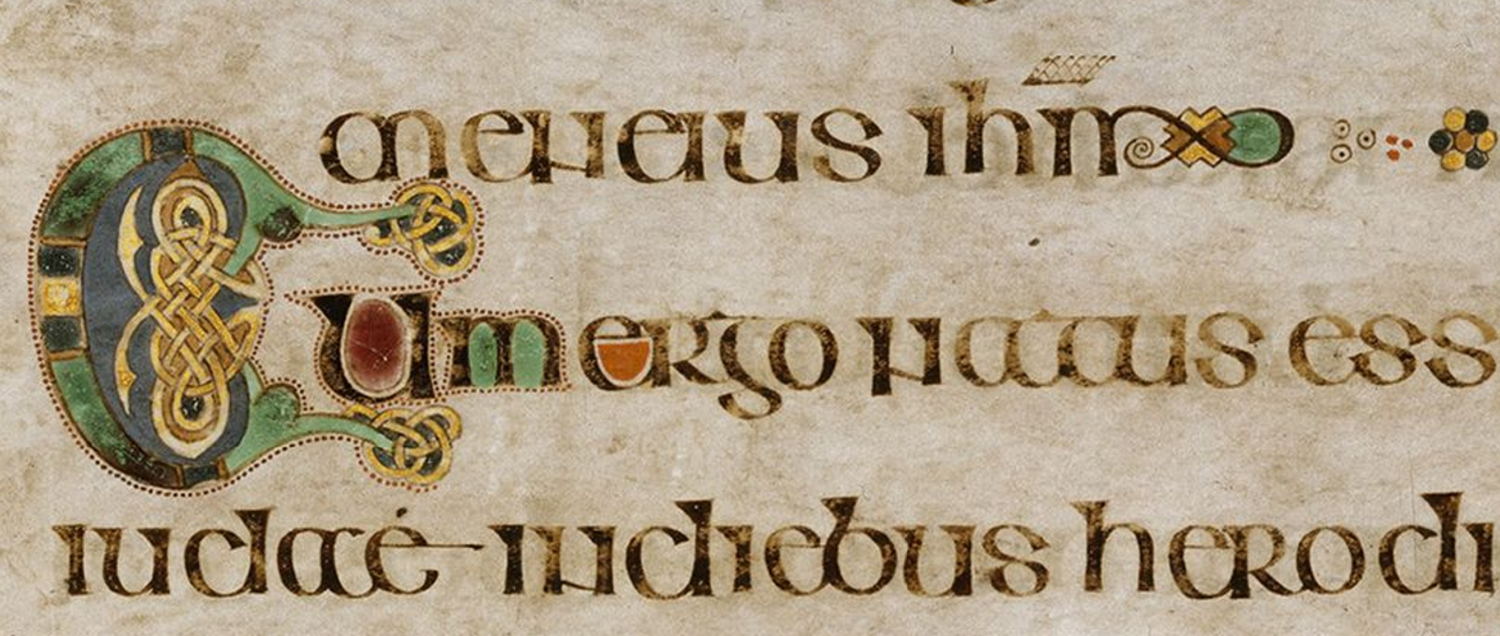 men eius ihm̅
Cum ergo natus ess
iudae in diebus herodi